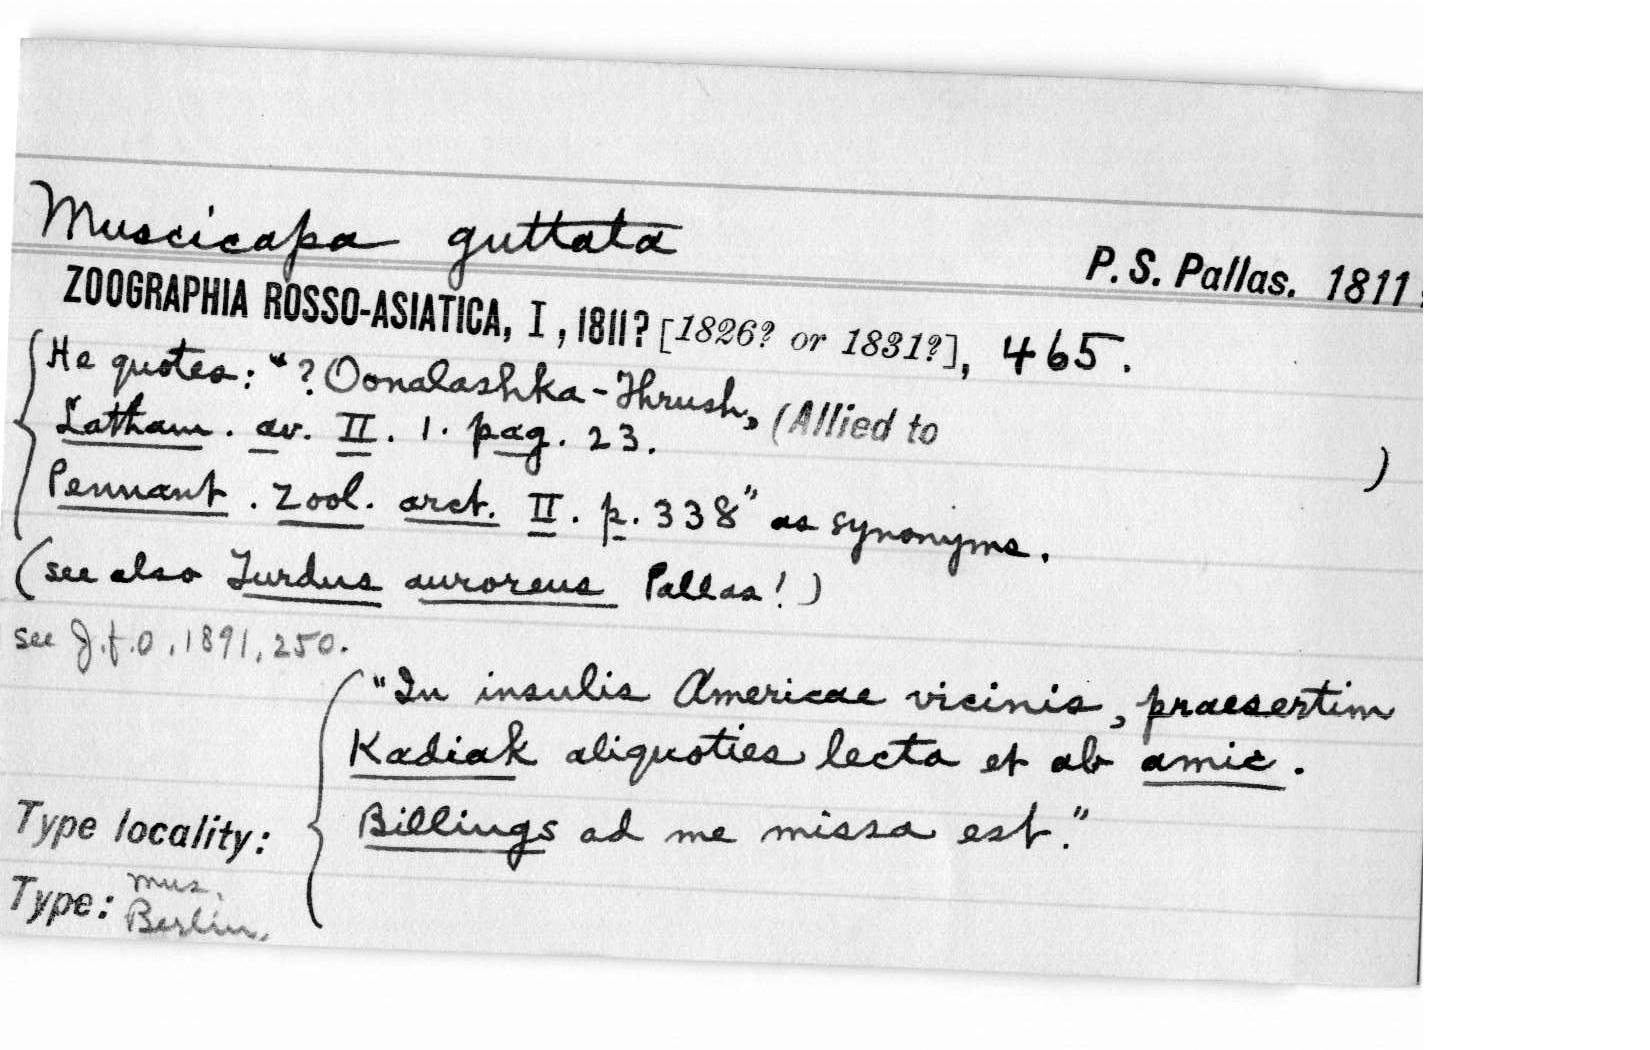 Muscicapa guttata
P. S. Pallas. 1811
ZOOGRAPHIA ROSSO-ASIATICA, I, 1811? [1826? or 1831?], 465.
He quotes: "? Oonalashka-Thrush, (Allied to
Latham. av. II. 1. pag. 23. )
Pennant. Zool. arct. II. p. 338" as synonyms.
(see also Turdus auroreus Pallas!)
see J.f.O, 1891, 250.
"In insulis Americae vicinis, praesertim
Kadiak aliquoties lecta et ab amic.
Type locality: Billings ad me missa est."
Type: Mus.
Berlin.